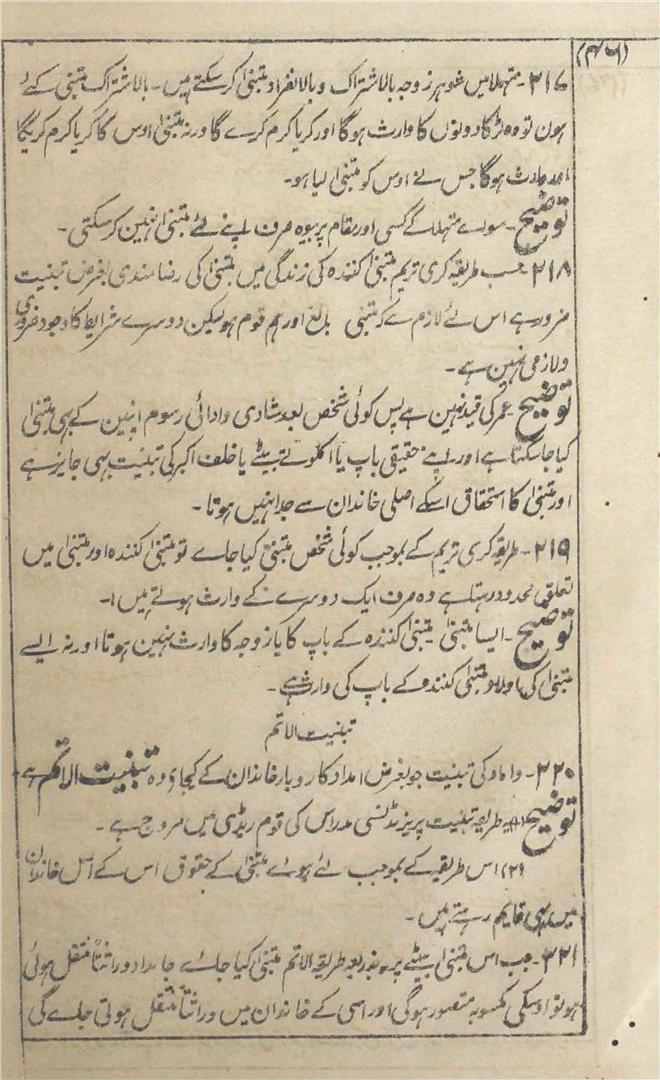 (۴۶)
۲۱۷- متہلا میں شوہر زوجہ بالاشتراک و بالانفراد متبنیٰ کر سکتے ہیں۔ بالاشتراک متبنیٰ کئے
ہون تو وہ لڑکا دونوں کا وارث ہوگا اور کریا کرم کرے گا ورنہ متبنیٰ اوس کا کریا کرم کریگا
اور وارث ہوگا جس نے اوس کو متبنیٰ لیا ہو۔
توضیح۔ سوائے متہلا کے کسی اور مقام پر بیوہ صرف اپنے لئے متبنیٰ نہین کر سکتی۔
۲۱۸ حسب طریقہ کری تریم متبنیٰ کنندہ کی زندگی میں متبنیٰ کی رضا مندی بغرض تبنیت
ضرور ہے اس لئے لازم ہے کہ متبنیٰ بالغ اور ہم قوم ہو لیکن دوسرے شرایط کا وجود ضروری
و لازمی نہین ہے۔
توضیح۔ عمر کی قید نہین ہے پس کوئی شخص بعد شادی و ادائی رسوم اپنین کے بہی متبنیٰ
کیا جاسکتا ہے اور اپنے حقیقی باپ یا اکلوتے بیٹے یا خلف اکبر کی تبنیت بہی جایز ہے
اور متبنیٰ کا استحقاق اسکے اصلی خاندان سے جدا نہیں ہوتا۔
۲۱۹- طریقہ کری تریم کے بموجب کوئی شخص متبنیٰ کیا جاے تو متبنیٰ کنندہ اور متبنیٰ میں
تعلق محدود رہتا ہے وہ صرف ایک دوسرے کے وارث ہوتے ہیں۔
توضیح۔ ایسا متبنیٰ متبنیٰ کنندہ کے باپ کا یا زوجہ کا وارث نہین ہوتا اور نہ ایسے
متبنیٰ کی اولاد متبنیٰ کنندہ کے باپ کی وارث ہے۔
تبنیت الاتم
۲۲۰- داماد کی تبنیت جو بغرض امداد کاروبار خاندان کے کیجاے وہ تبنیت الاتم ہے۔
توضیح (۱) طریقہ تبنیت پریزیڈنسی مدراس کی قوم ریڈی میں مروج ہے۔
(۲) اس طریقہ کے بموجب لئے ہوئے متبنیٰ کے حقوق اس کے اصل خاندان
میں بہی قایم رہتے ہیں۔
۲۲۱- جب اس متبنیٰ بیٹے پر بذریعہ طریقہ الاتم متبنیٰ کیا جائے جائداد وراثتاً منتقل ہوئی
ہو تو اوسکی مکسوبہ متصور ہوگی اور اسی کے خاندان میں وراثتاً منتقل ہوتی جلے گی